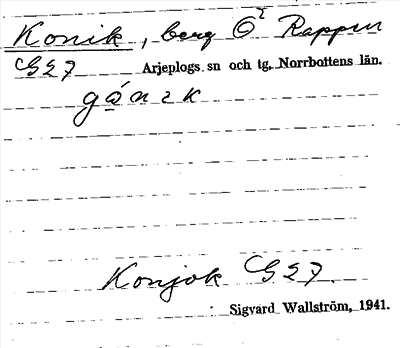 Konik, berg Ö² Rappen
G27 Arjeplogs sn och tg, Norrbottens län.
Konjok G27.
Sigvard Wallström, 1941.